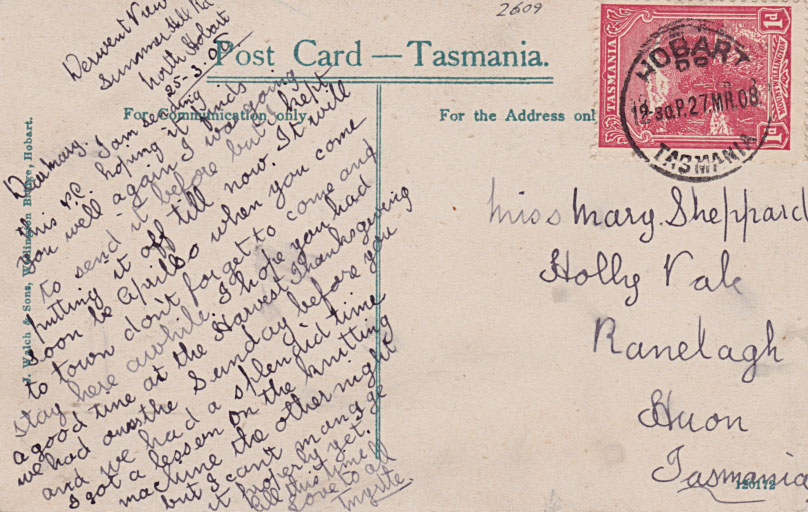 2609
Post Card — Tasmania.
For Communication only.
For the Address onl
J. Walch & Sons, Wellington Bridge, Hobart.
TASMANIA
1D
1D
HOBART
12-30.P.27.MR.08
TASMANIA
Derwent View
Summer Hill Rd
North Hobart
25-3-08
Dear Mary. I am sending
this P.C. hoping it finds
you well again I was going
to send it before but kept
putting it off till now. It will
soon be April so when you come
to town don't forget to come and
stay here awhile. I hope you had
a good time at the Harvest Thanksgiving
we had ours the Sunday before you
and we had a splendid time
I got a lesson on the knitting
machine the other night
but I can't manage
it properly yet.
this time
Love to all
Myrtle.
Miss Mary. Sheppard
Holly Vale
Ranelagh
Huon
Tasmania
120112